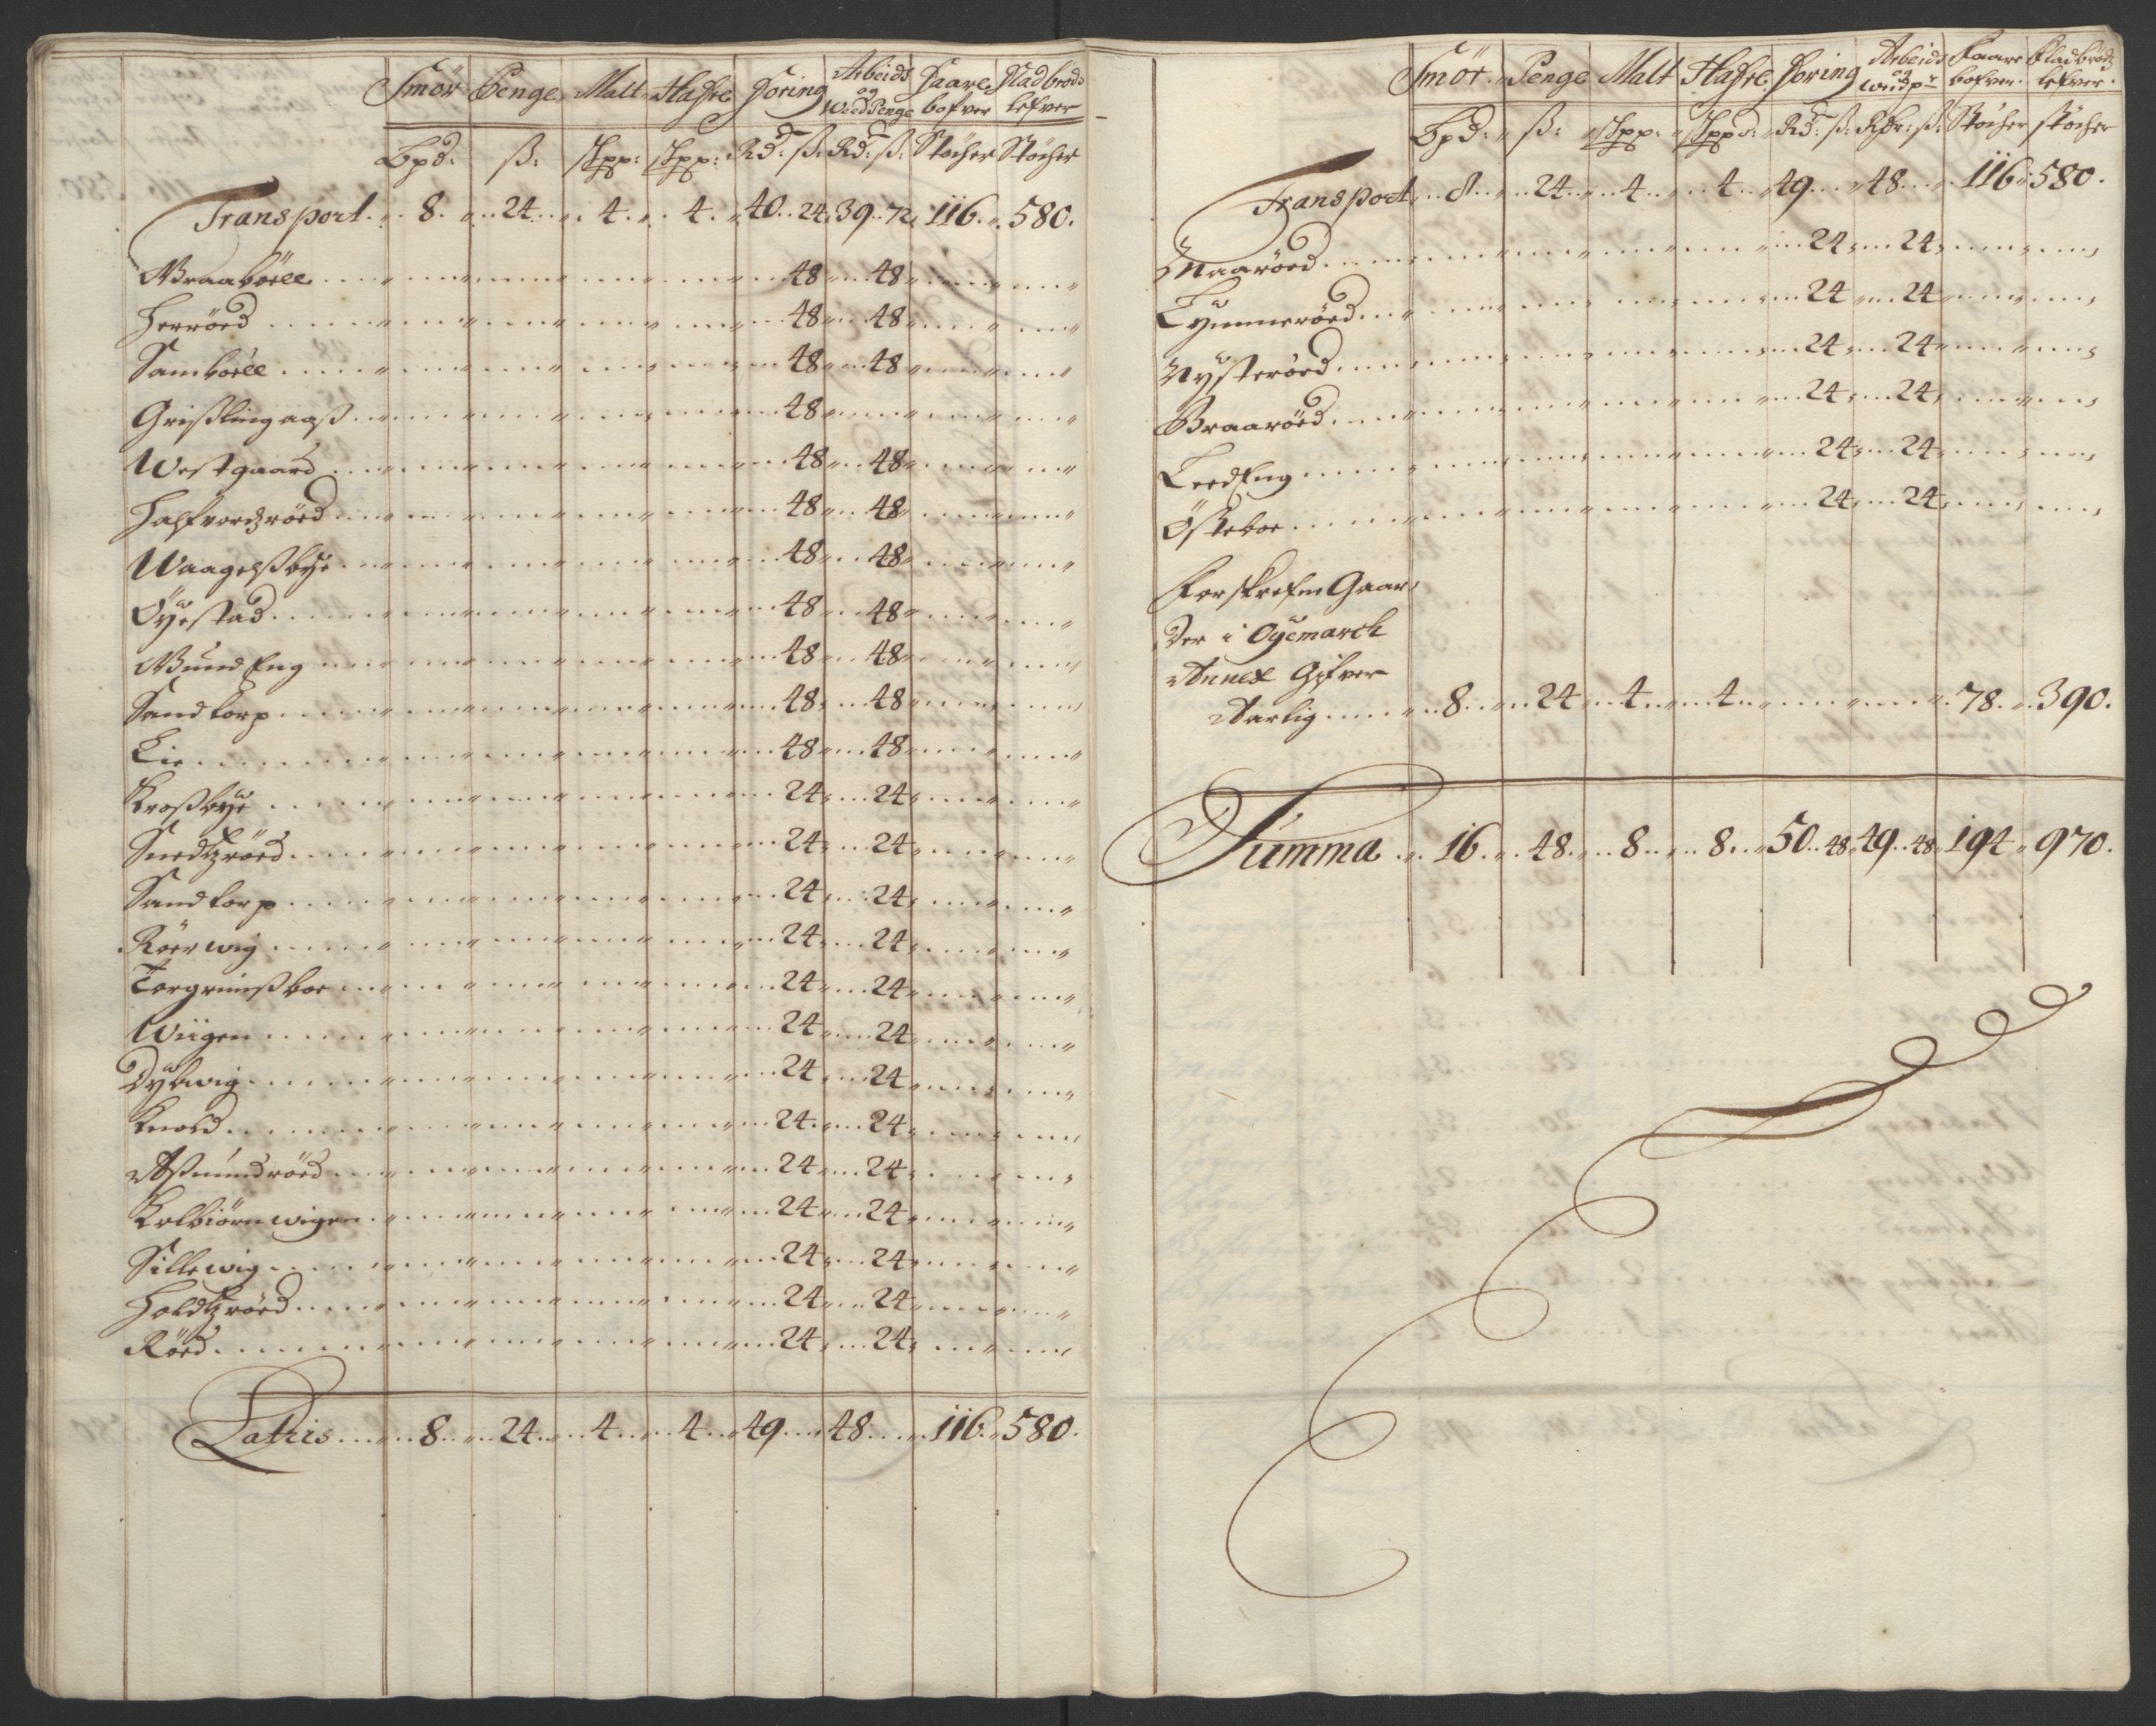 Smör Penge Malt Hafre Foring Arbeids og WedPenge Faare bofver Fladbröds lefver
Bpd: ß: Spp: Spp: Rd: ß: Rd: ß: Stöcher Stöcher
Transport 8 24 4 4 40 24 39 72 116 580
Braaböell 48 48
Herröed 48 48
Samböell 48 48
Grißlingaaß 48
Westgaard 48 48
Halfvordzröed 48 48
Waagelßbÿe 48 48
Öÿestad 48 48
BundEng 48 48
Sandtorp 48 48
Lie 48 48
Kroßbÿe 24 24
Snedtzröed 24 24
Sandtorp 24 24
Röerwig 24 24
Torgrimßboe 24 24
Wiigen 24 24
Dÿbwig 24 24
Knold 24 24
Aßmundröed 24 24
Kolbiörnwigen 24 24
Sillewig 24 24
Holdtzröed 24 24
Röed 24 24
Lateris 8 24 4 4 49 48 116 580
Smör Penge Malt Hafre Foring Arbeids og Wedp Faare bofver Fladbröd lefver
Bpd: ß: Spp: Sppd: Rd: ß: Rdr: ß: Stöcher stöcher
Transport 8 24 4 4 49 48 116 580
Maaröed 24 24
Lÿnneröed 24 24
Nÿsteröed 24 24
Braaröed 24 24
LeedEng 24 24
Östeboe 24 24
Forskrefne Gaar
der i Oÿemarch
Annex Gifver
Aarlig 8 24 4 4 78 390
Summa 16 48 8 8 50 48 49 48 194 970